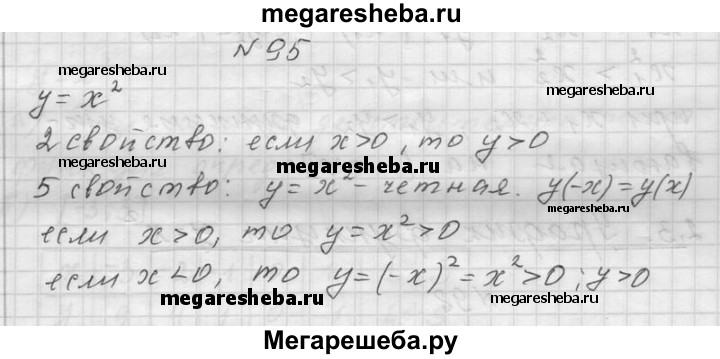 megaresheba.ru
N 95
megaresheba.ru megaresheba.ru
y = x²
2 свойство: если x>0, то y>0
megaresheba.ru megaresheba.ru
5 свойство: y = x² - четная. y(-x) = y(x)
megaresheba.ru
если x>0, то y = x² > 0
если x<0, то y = (-x)² = x² > 0; y>0
megaresheba.ru megaresheba.ru
Мегарешеба.ру